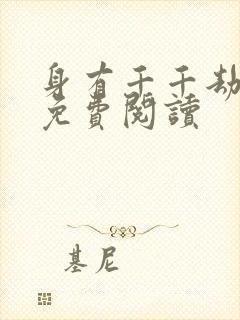 身有千千劫
免費閱讀
基尼